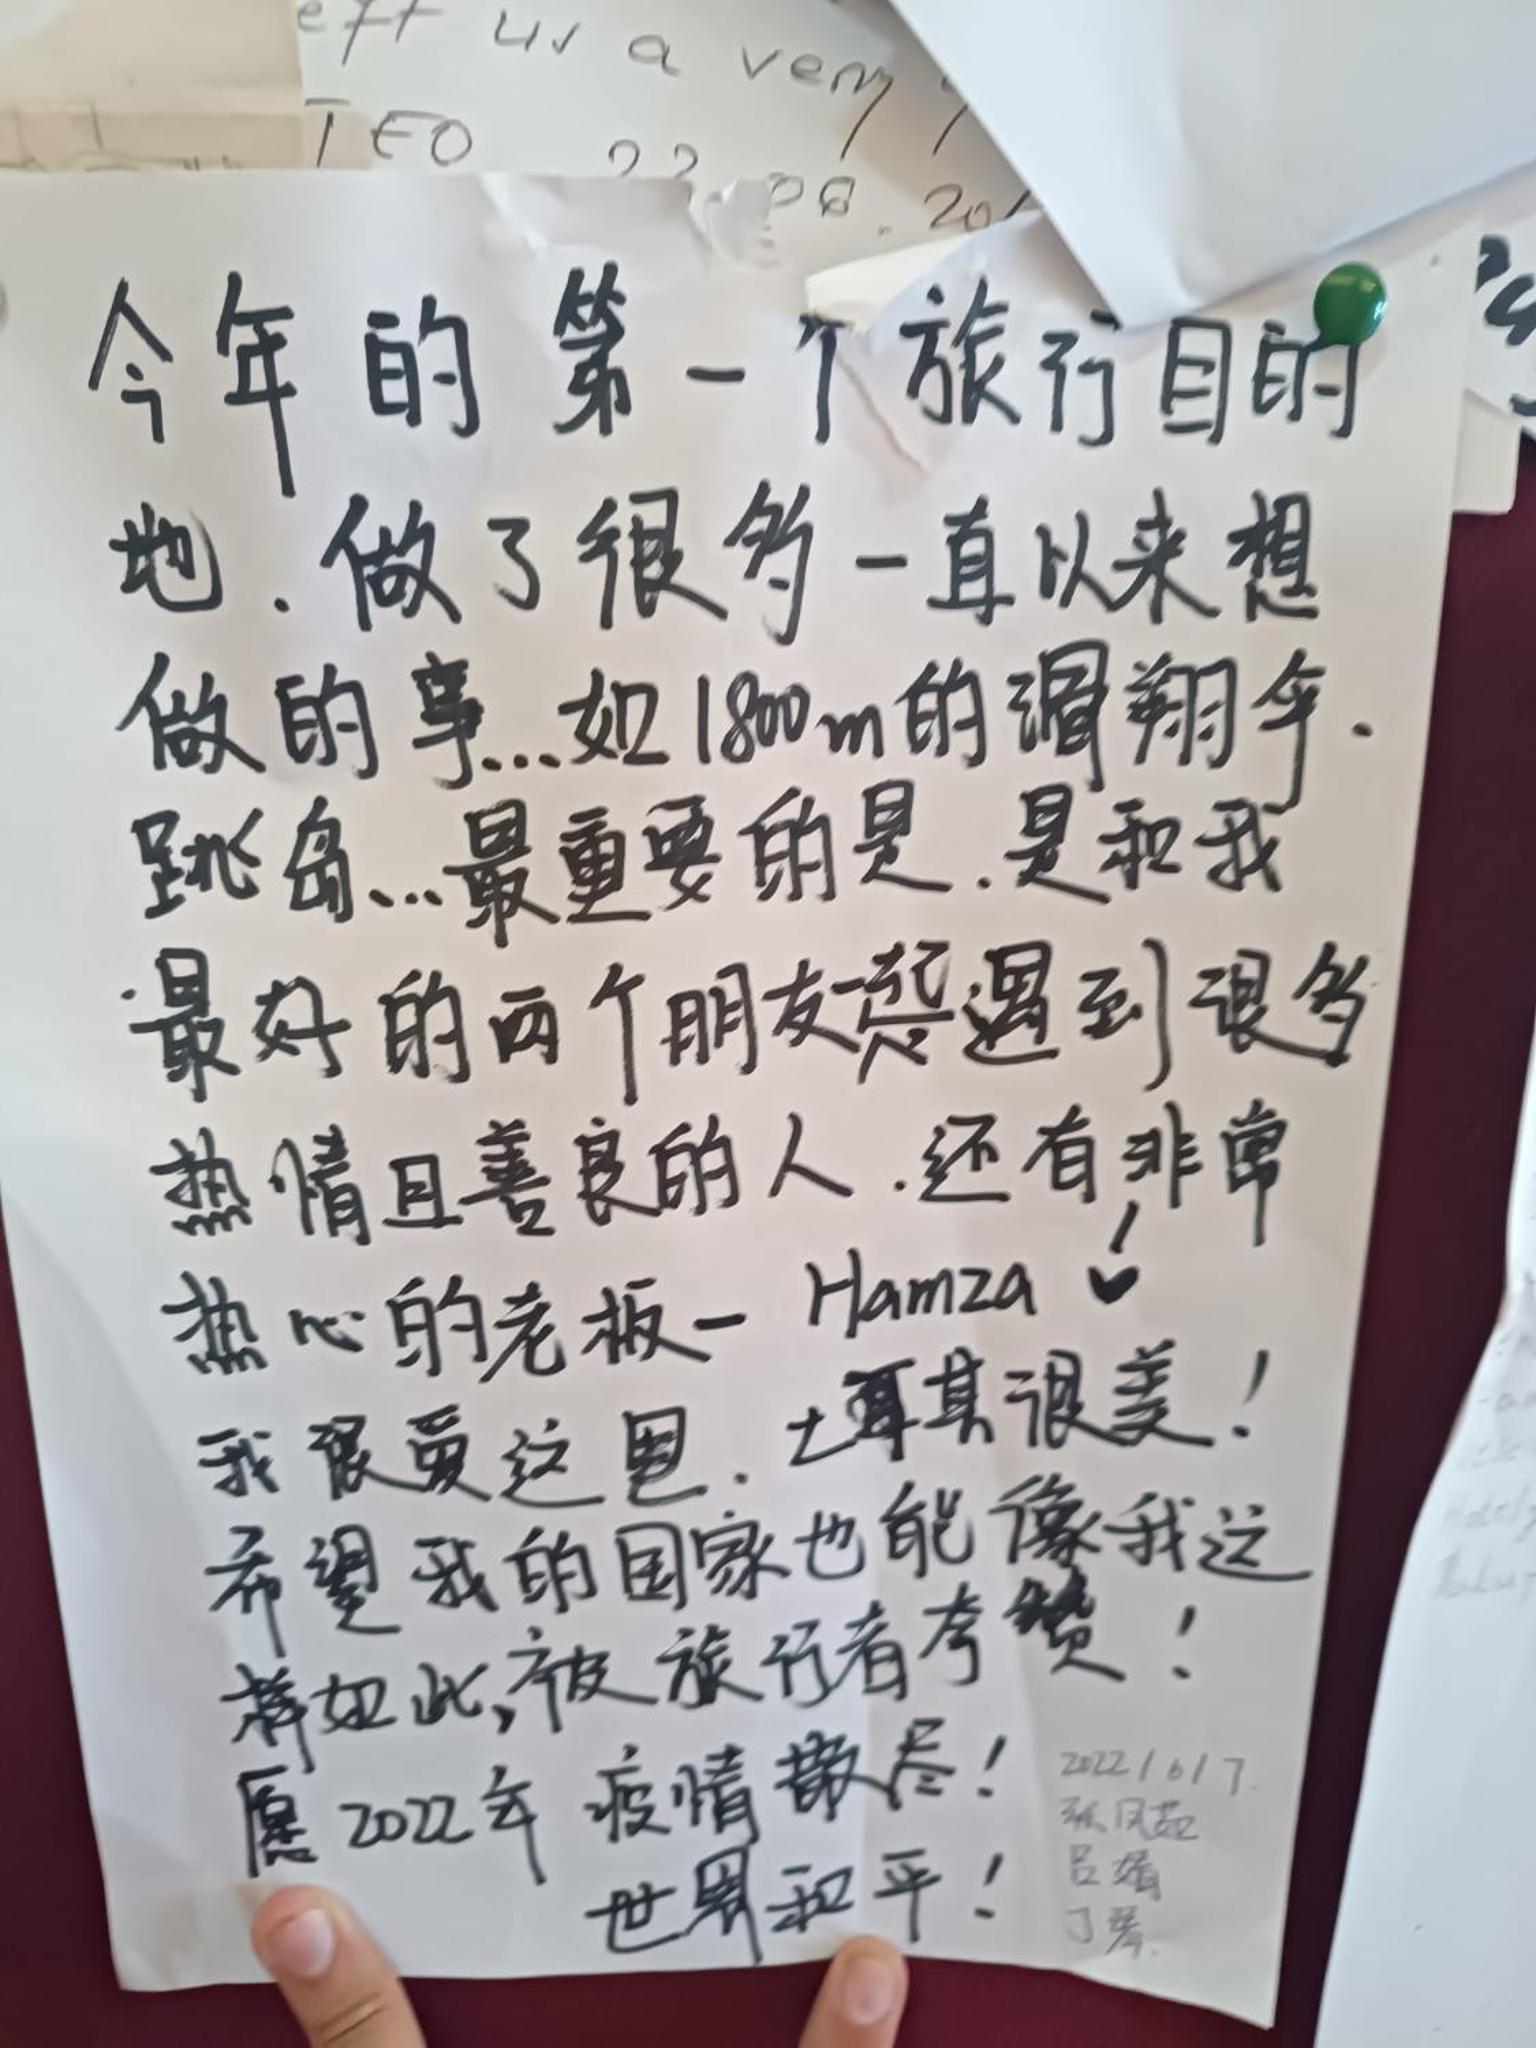 us a very
TEO
08.20
今年的第一个旅行目的
地.做了很多一直以来想
做的事...如1800m的滑翔伞.
跳岛...最重要的是.是和我
最好的两个朋友一起遇到很多
热情且善良的人.还有非常
热心的老板— Hamza
我很爱这里.土耳其很美!
希望我的国家也能像我这
样如此,被旅行者夸赞!
愿2022年 疫情散尽!
世界和平!
2022/6/7.
张凤茹
吕婧
丁琴.